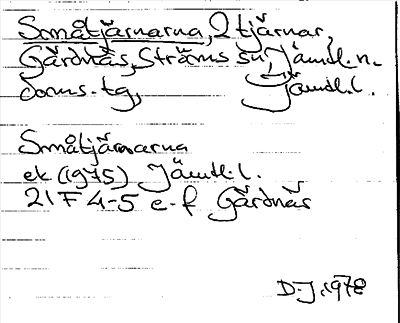 Småtjärnarna, 2 tjärnar,
Gärdnäs, Ströms sn, Jämtl. n.
doms. tg, Jämtl. l.
Småtjärnarna
ek (1975) Jämtl. l.
21 F 4-5 e-f Gärdnäs
D.J. 1978